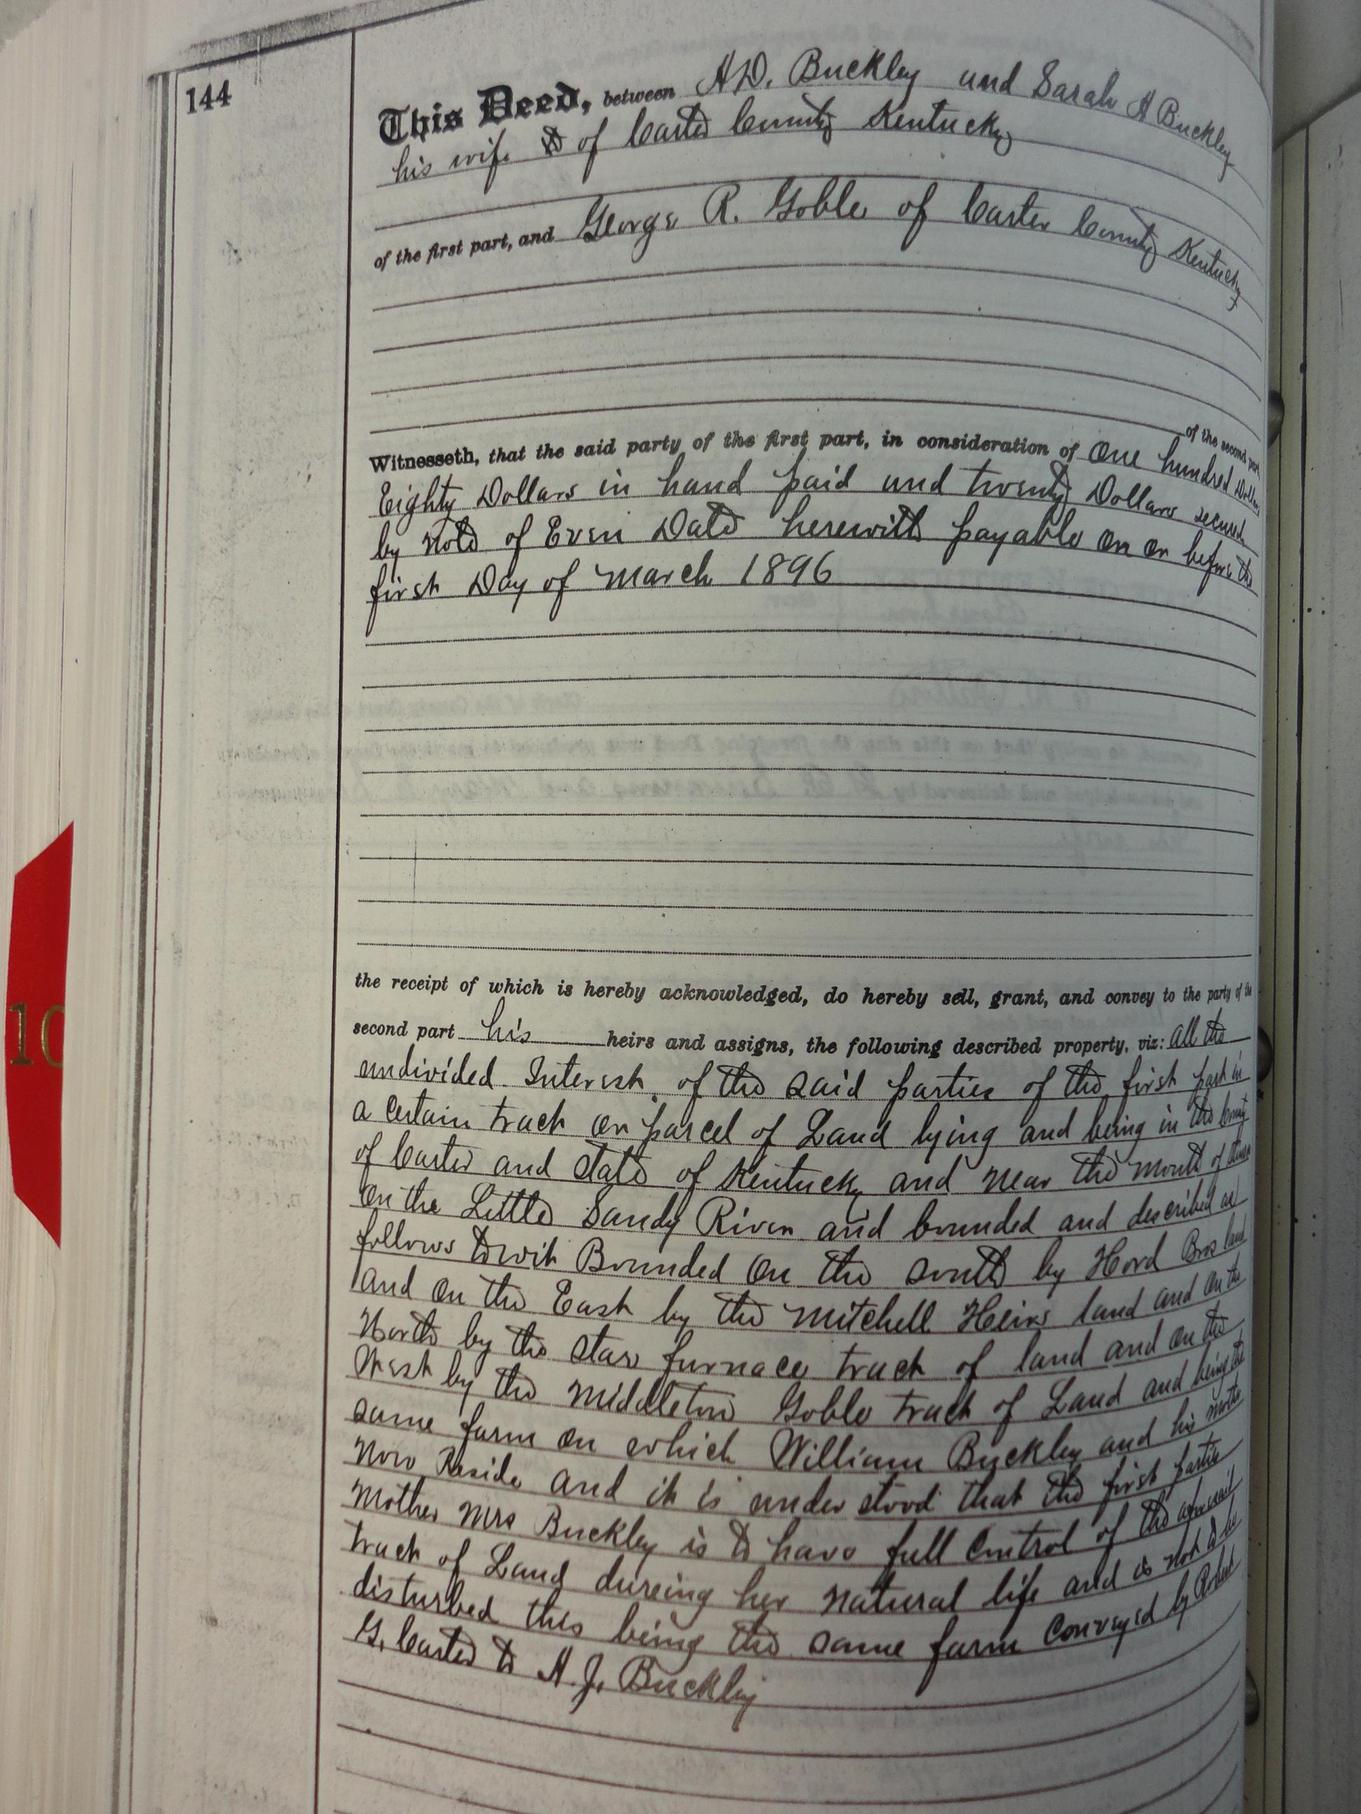 144
This Deed, between A.D. Buckley and Sarah A Buckley
his wife of Carter County Kentucky
of the first part, and George R. Goble of Carter County Kentucky
of the second part
Witnesseth, that the said party of the first part, in consideration of One hundred Dollars
Eighty Dollars in hand paid and twenty Dollars secured
by note of Even Date herewith payable on or before the
first Day of March 1896
the receipt of which is hereby acknowledged, do hereby sell, grant, and convey to the party of the
second part his heirs and assigns, the following described property, viz: all the
undivided Interest of the said parties of the first part in
a certain track or parcel of Land lying and being in the County
of Carter and State of Kentucky and near the mouth of
on the Little Sandy River and bounded and described as
follows towit Bounded on the south by Hord Bros land
and on the East by the Mitchell Heirs land and on the
North by the Star furnace track of land and on the
West by the Middleton Goble track of Land and being the
same farm on which William Buckley and his mother
Now Reside and it is understood that the first parties
Mother Mrs Buckley is to have full control of the aforesaid
track of Land dureing her natural life and is not to be
disturbed this being the same farm conveyed by Robert
G. Carter to A. J. Buckley
10